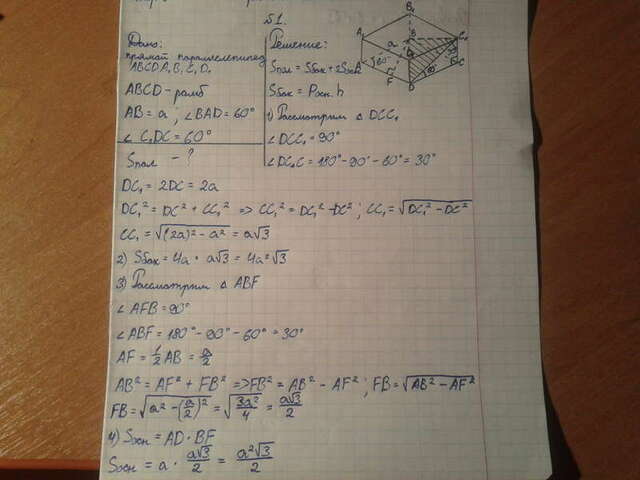 №1.
Дано:
прямой параллелепипед
ABCDA₁B₁C₁D₁
ABCD - ромб
AB = a ; ∠BAD = 60°
∠ C₁DC = 60°
Sпол - ?
Решение:
Sпол = Sбок + 2Sосн
Sбок = Pосн. h
1) Рассмотрим △ DCC₁
∠DCC₁ = 90°
∠DC₁C = 180° - 90° - 60° = 30°
DC₁ = 2DC = 2a
DC₁² = DC² + CC₁² => CC₁² = DC₁² - DC² ; CC₁ = √(DC₁² - DC²)
CC₁ = √((2a)² - a²) = a√3
2) Sбок = 4a · a√3 = 4a²√3
3) Рассмотрим △ ABF
∠ AFB = 90°
∠ ABF = 180° - 90° - 60° = 30°
AF = 1/2 AB = a/2
AB² = AF² + FB² => FB² = AB² - AF² ; FB = √(AB² - AF²)
FB = √(a² - (a/2)²) = √(3a²/4) = a√3/2
4) Sосн = AD · BF
Sосн = a · a√3/2 = a²√3/2
B₁
A₁
C₁
B
a
A
60°
F
D
C
60°